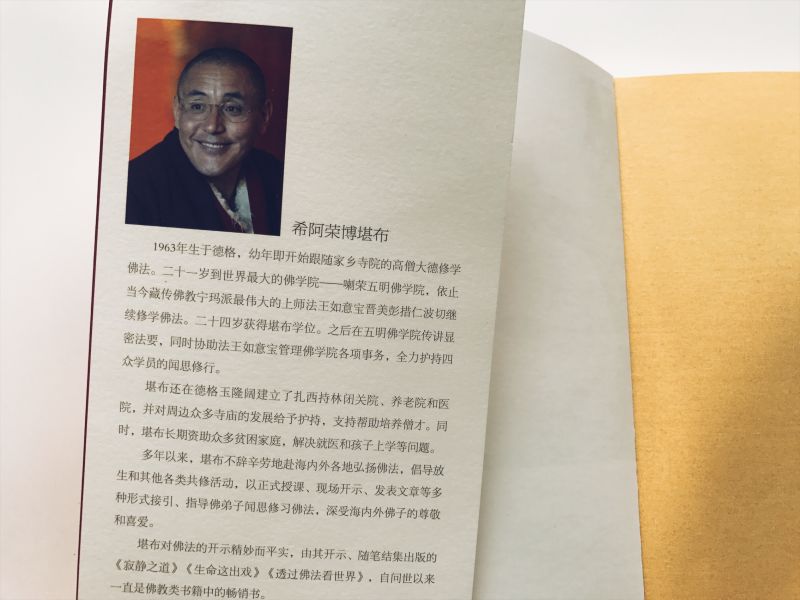 希阿荣博堪布
1963年生于德格，幼年即开始跟随家乡寺院的高僧大德修学
佛法。二十一岁到世界最大的佛学院——喇荣五明佛学院，依止
当今藏传佛教宁玛派最伟大的上师法王如意宝晋美彭措仁波切继
续修学佛法。二十四岁获得堪布学位。之后在五明佛学院传讲显
密法要，同时协助法王如意宝管理佛学院各项事务，全力护持四
众学员的闻思修行。
堪布还在德格玉隆阔建立了扎西持林闭关院、养老院和医
院，并对周边众多寺庙的发展给予护持，支持帮助培养僧才。同
时，堪布长期资助众多贫困家庭，解决就医和孩子上学等问题。
多年以来，堪布不辞辛劳地赴海内外各地弘扬佛法，倡导放
生和其他各类共修活动，以正式授课、现场开示、发表文章等多
种形式接引、指导佛弟子闻思修习佛法，深受海内外佛子的尊敬
和喜爱。
堪布对佛法的开示精妙而平实，由其开示、随笔结集出版的
《寂静之道》《生命这出戏》《透过佛法看世界》，自问世以来
一直是佛教类书籍中的畅销书。